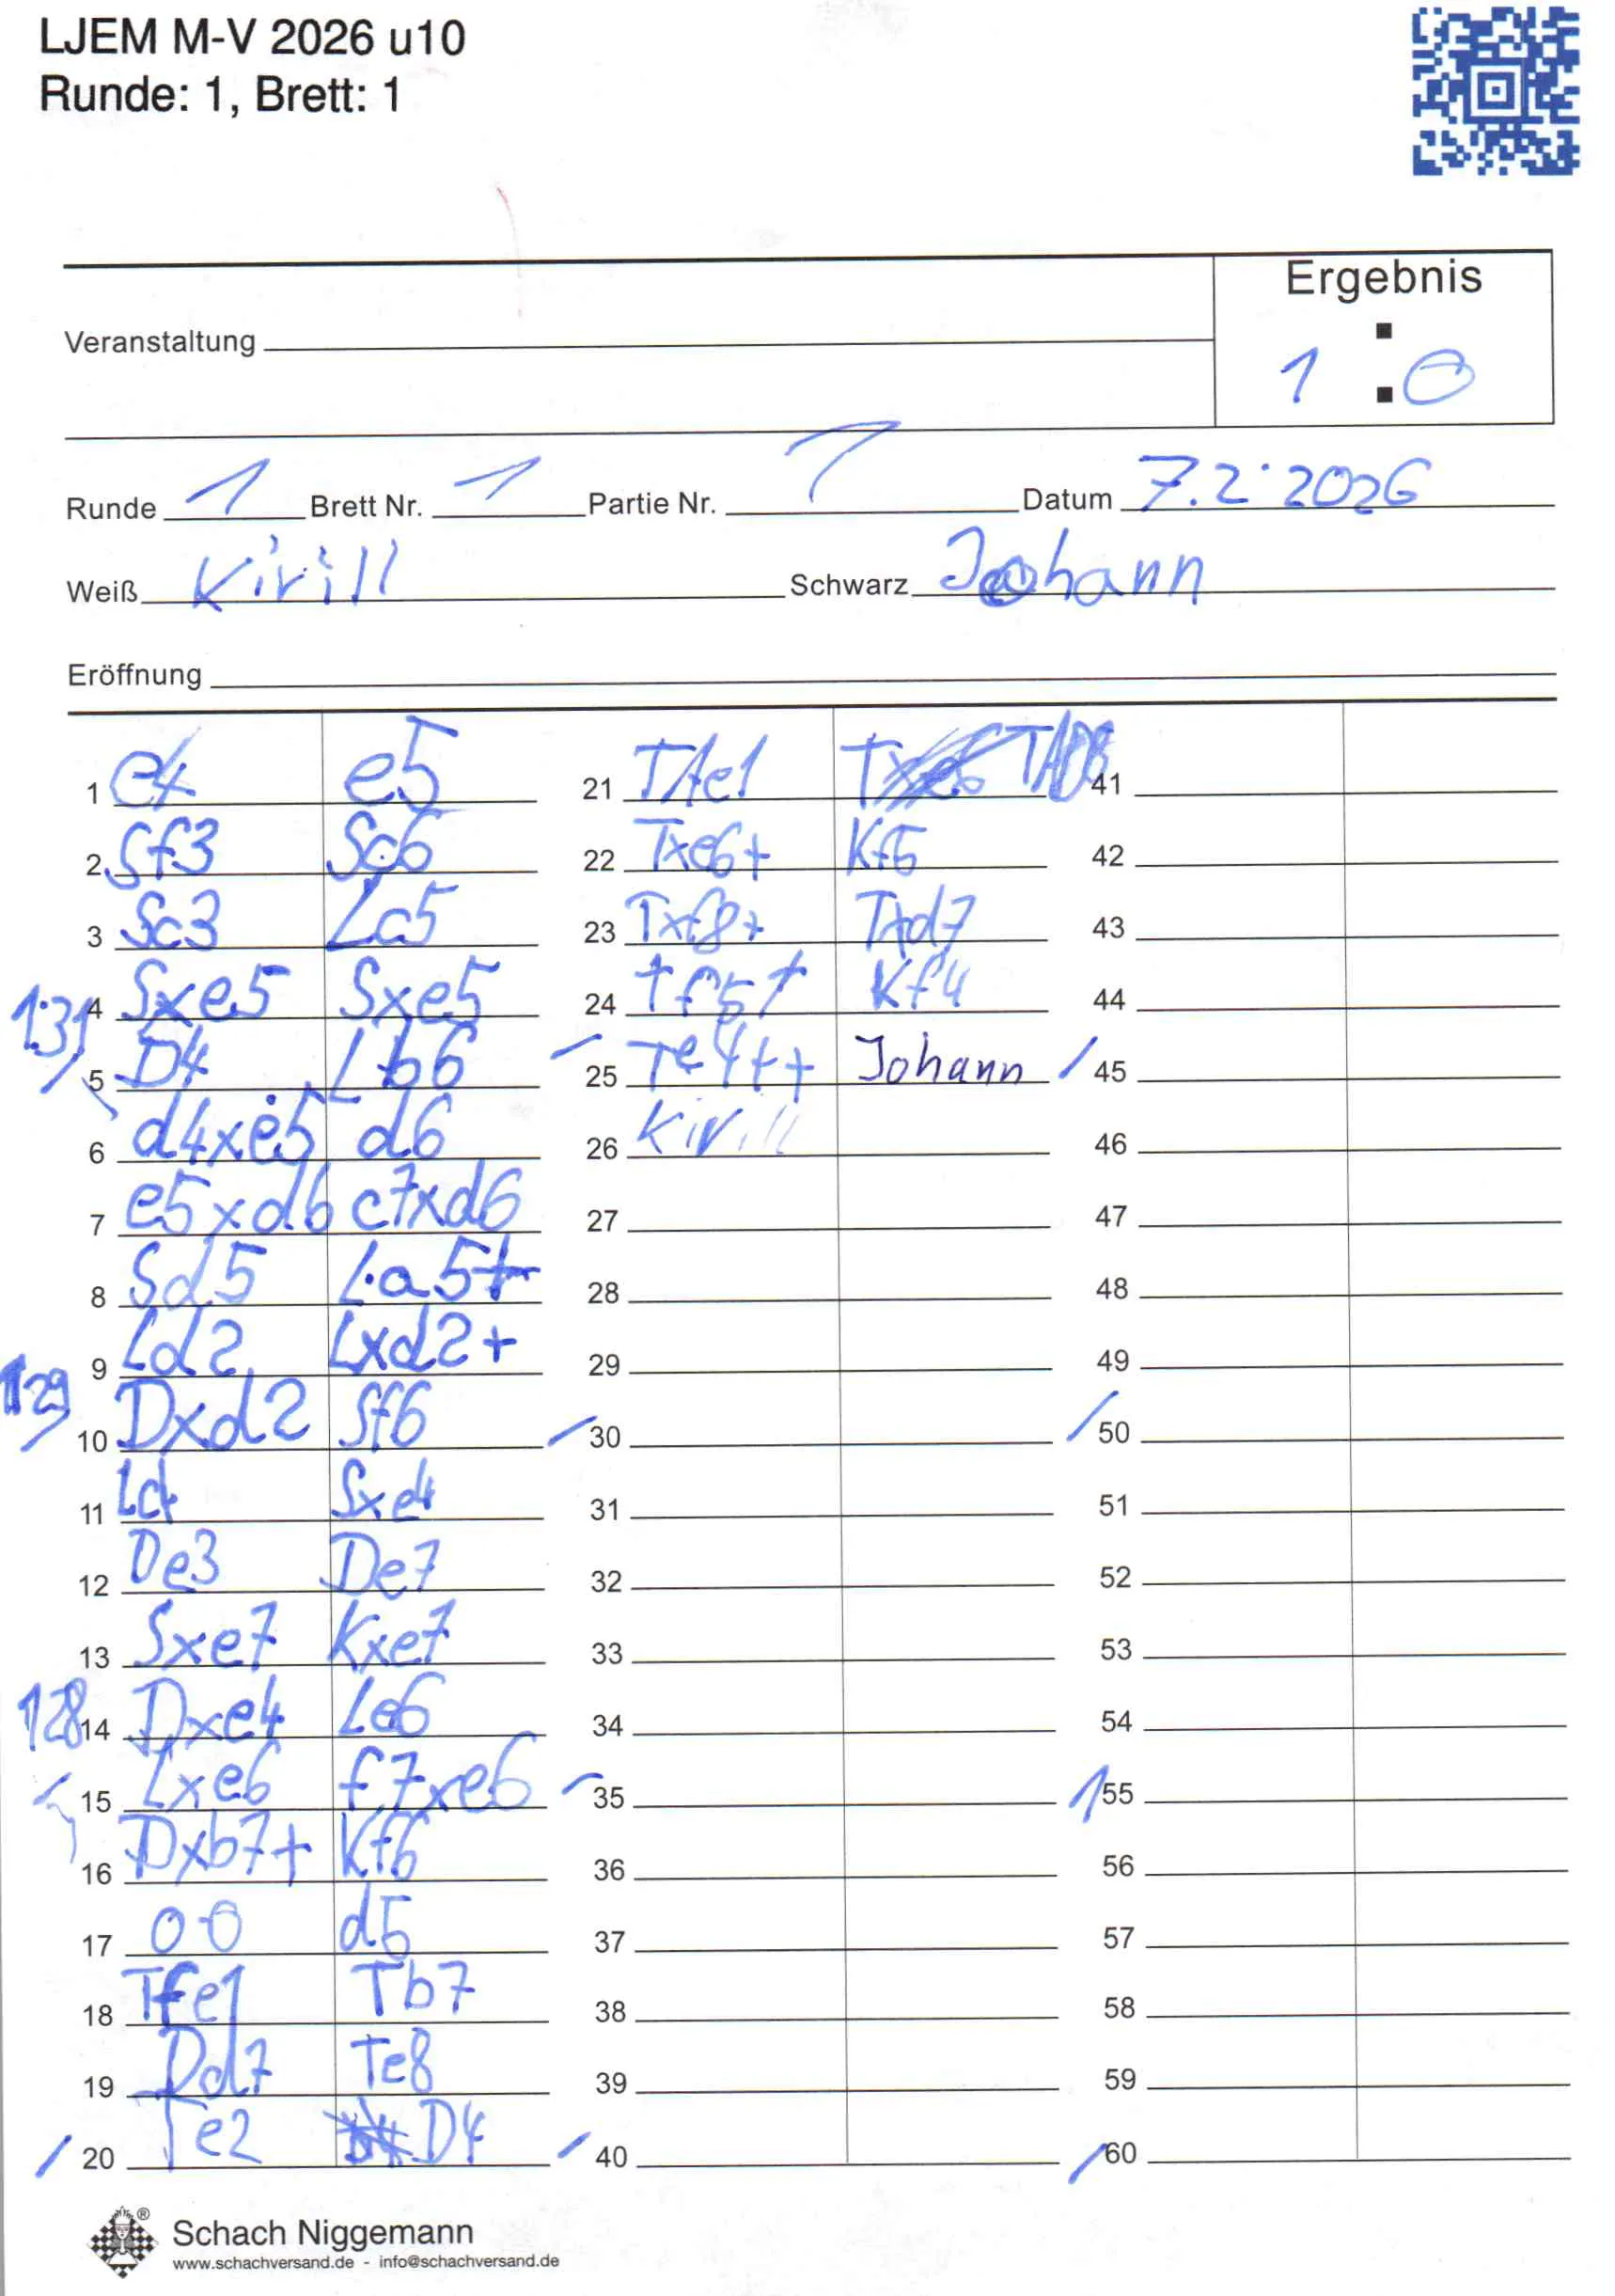 LJEM M-V 2026 u10
Runde: 1, Brett: 1
Ergebnis
Veranstaltung
1 : 0
Runde 1 Brett Nr. 1 Partie Nr. 1 Datum 7.2.2026
Weiß Kirill Schwarz Johann
Eröffnung
1 e4 e5
2 Sf3 Sc6
3 Sc3 Lc5
131
4 Sxe5 Sxe5
5 D4 Lb6
6 d4xe5 d6
7 e5xd6 c7xd6
8 Sd5 La5+
9 Ld2 Lxd2+
129
10 Dxd2 Sf6
11 Lc4 Sxe4
12 De3 De7
13 Sxe7 Kxe7
128
14 Dxe4 Le6
15 Lxe6 f7xe6
16 Dxb7+ Kf6
17 0-0 d5
18 Tfe1 Tb7
19 Dd7 Te8
20 Te2 D4
21 TAe1
22 Txe6+ Kf5
23 Txf8+ TAd7
24 Tf5+ Kf4
25 Te4++ Johann
26 Kirill
27
28
29
30
31
32
33
34
35
36
37
38
39
40
41
42
43
44
45
46
47
48
49
50
51
52
53
54
55
56
57
58
59
60
®
Schach Niggemann
www.schachversand.de - info@schachversand.de